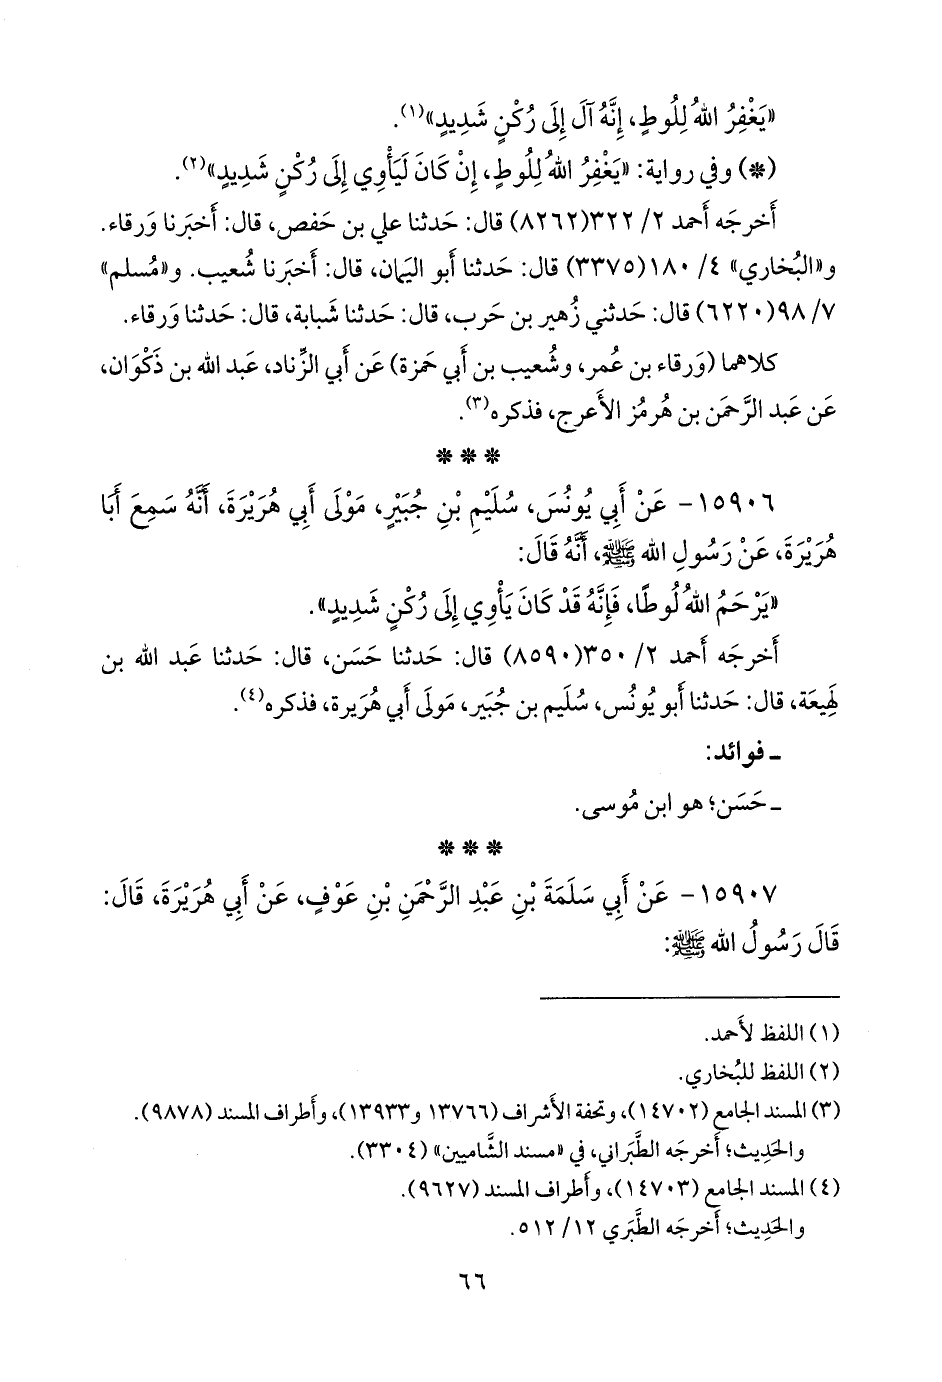 «يَغْفِرُ اللهُ لِلُوطٍ، إِنَّهُ آلَ إِلَى رُكْنٍ شَدِيدٍ»(١).
(*) وفي رواية: «يَغْفِرُ اللهُ لِلُوطٍ، إِنْ كَانَ لَيَأْوِي إِلَى رُكْنٍ شَدِيدٍ»(٢).
أَخرجَه أَحمد ٢/ ٣٢٢(٨٢٦٢) قال: حَدثنا علي بن حَفص، قال: أَخبَرنا وَرقاء.
و«البُخاري» ٤/ ١٨٠(٣٣٧٥) قال: حَدثنا أَبو اليَمان، قال: أَخبَرنا شُعيب. و«مُسلم»
٧/ ٩٨(٦٢٢٠) قال: حَدثني زُهير بن حَرب، قال: حَدثنا شَبابة، قال: حَدثنا وَرقاء.
كلاهما (وَرقاء بن عُمر، وشُعيب بن أَبي حَمزة) عَن أَبي الزِّناد، عَبد الله بن ذَكْوَان،
عَن عَبد الرَّحمَن بن هُرمُز الأَعرج، فذكره(٣).
* * *
١٥٩٠٦- عَنْ أَبِي يُونُسَ، سُلَيْمِ بْنِ جُبَيْرٍ، مَوْلَى أَبِي هُرَيْرَةَ، أَنَّهُ سَمِعَ أَبَا
هُرَيْرَةَ، عَنْ رَسُولِ الله ﷺ، أَنَّهُ قَالَ:
«يَرْحَمُ اللهُ لُوطًا، فَإِنَّهُ قَدْ كَانَ يَأْوِي إِلَى رُكْنٍ شَدِيدٍ».
أَخرجَه أَحمد ٢/ ٣٥٠(٨٥٩٠) قال: حَدثنا حَسَن، قال: حَدثنا عَبد الله بن
لَهِيعَة، قال: حَدثنا أَبو يُونُس، سُلَيم بن جُبَير، مَولَى أَبي هُرَيرة، فذكره(٤).
ـ فوائد:
ـ حَسَن؛ هو ابن مُوسى.
* * *
١٥٩٠٧- عَنْ أَبِي سَلَمَةَ بْنِ عَبْدِ الرَّحْمَنِ بْنِ عَوْفٍ، عَنْ أَبِي هُرَيْرَةَ، قَالَ:
قَالَ رَسُولُ الله ﷺ:
(١) اللفظ لأَحمد.
(٢) اللفظ للبُخاري.
(٣) المسند الجامع (١٤٧٠٢)، وتحفة الأَشراف (١٣٧٦٦ و١٣٩٣٣)، وأَطراف المسند (٩٨٧٨).
والحَدِيث؛ أَخرجَه الطَّبَراني، في «مسند الشَّاميين» (٣٣٠٤).
(٤) المسند الجامع (١٤٧٠٣)، وأَطراف المسند (٩٦٢٧).
والحَدِيث؛ أَخرجَه الطَّبَري ١٢/ ٥١٢.
٦٦